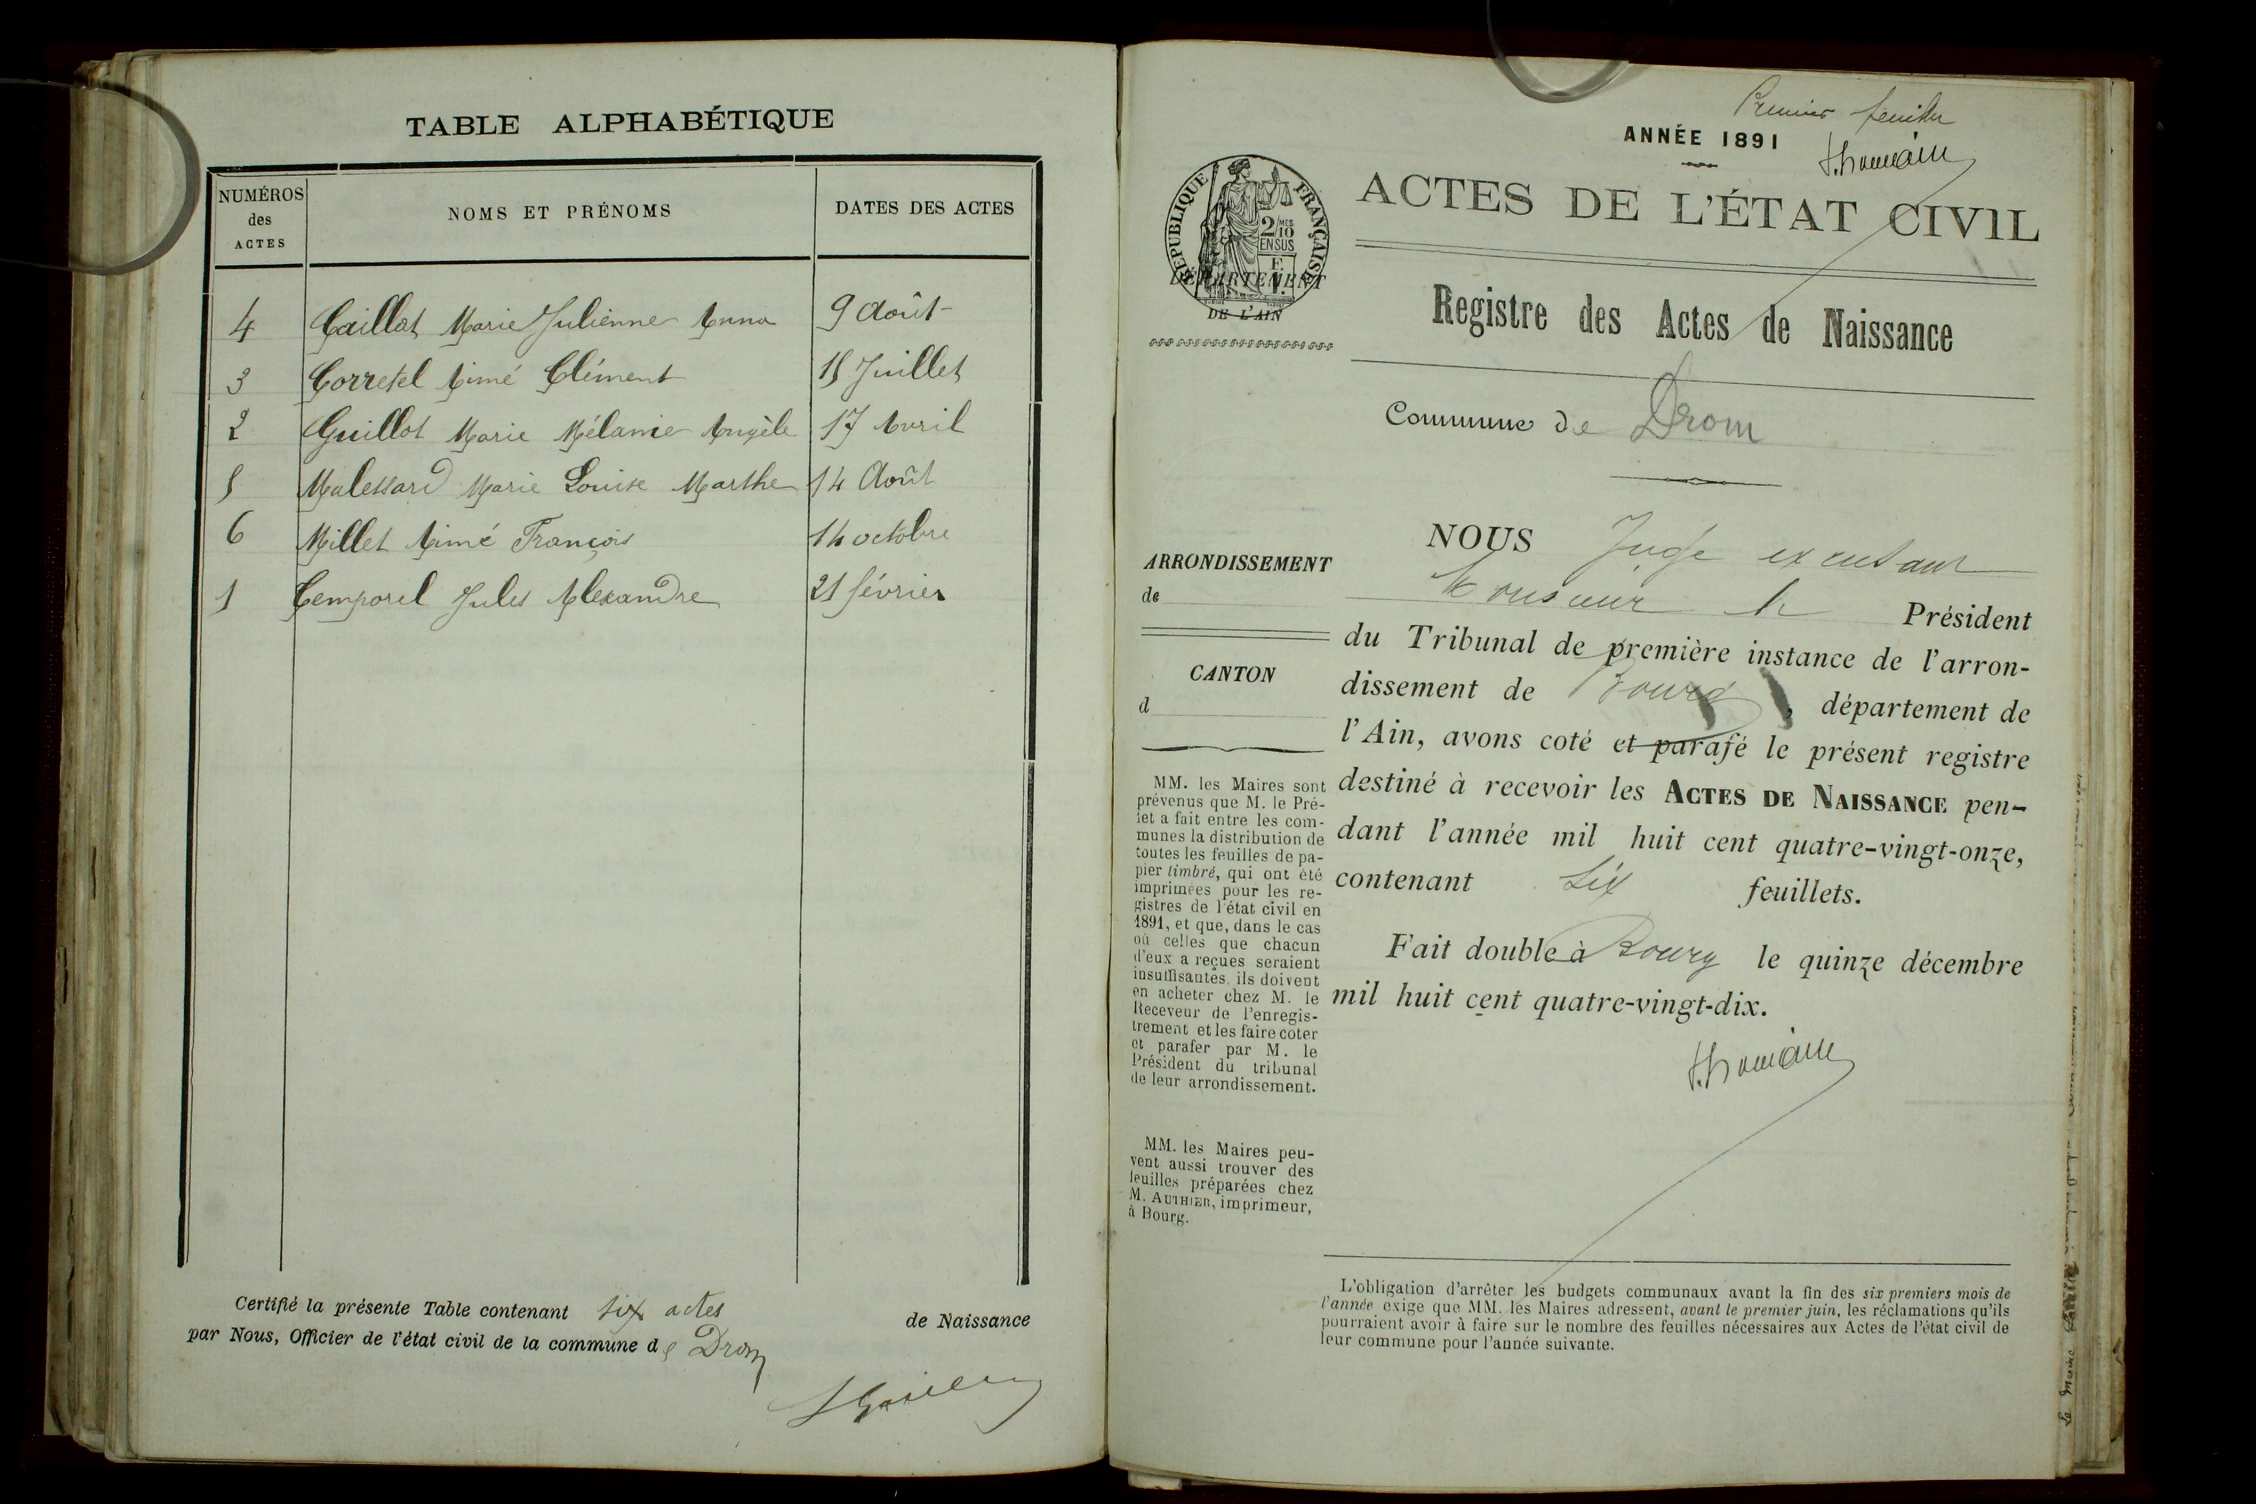 TABLE ALPHABÉTIQUE
NUMÉROS des ACTES NOMS ET PRÉNOMS DATES DES ACTES
4 Caillat Marie Julienne Anna 9 Août
3 Corretel Aimé Clément 15 Juillet
2 Guillot Marie Mélanie Angèle 17 Avril
5 Malessard Marie Louise Marthe 14 Août
6 Millet Aimé François 14 octobre
1 Temporel Jules Alexandre 21 février
Certifié la présente Table contenant six actes de Naissance
par Nous, Officier de l'état civil de la commune de Drom
Premier feuillet
ANNÉE 1891
Thomain
RÉPUBLIQUE FRANÇAISE
2/10 MES
EN SUS
DÉPARTEMENT
DE L'AIN
ACTES DE L'ÉTAT CIVIL
Registre des Actes de Naissance
Commune de Drom
ARRONDISSEMENT
de
CANTON
d
MM. les Maires sont
prévenus que M. le Pré-
fet a fait entre les com-
munes la distribution de
toutes les feuilles de pa-
pier timbré, qui ont été
imprimées pour les re-
gistres de l'état civil en
1891, et que, dans le cas
où celles que chacun
d'eux a reçues seraient
insuffisantes, ils doivent
en acheter chez M. le
Receveur de l'enregis-
trement et les faire coter
et parafer par M. le
Président du tribunal
de leur arrondissement.
MM. les Maires peu-
vent aussi trouver des
feuilles préparées chez
M. AUTHIER, imprimeur,
à Bourg.
NOUS Juge excusant
Monsieur le Président
du Tribunal de première instance de l'arron-
dissement de Bourg, département de
l'Ain, avons coté et parafé le présent registre
destiné à recevoir les ACTES DE NAISSANCE pen-
dant l'année mil huit cent quatre-vingt-onze,
contenant six feuillets.
Fait double à Bourg le quinze décembre
mil huit cent quatre-vingt-dix.
Thomain
L'obligation d'arrêter les budgets communaux avant la fin des six premiers mois de
l'année exige que MM. les Maires adressent, avant le premier juin, les réclamations qu'ils
pourraient avoir à faire sur le nombre des feuilles nécessaires aux Actes de l'état civil de
leur commune pour l'année suivante.